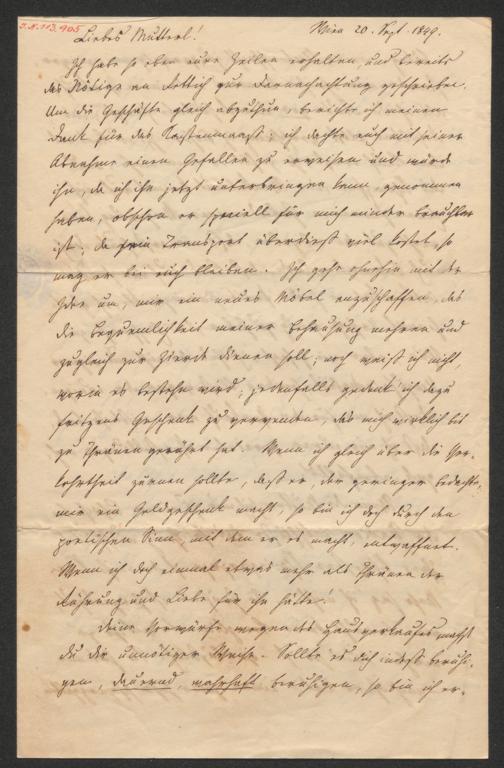 J.N. 113.905
Wien 20. Sept. 1849.
Liebes Mutterl!
Ich habe so eben eure Zeilen erhalten und bereits
das Nötige an zur Darnachachtung geschrieben.
Um die Geschäfte gleich abzuthun, berichte ich meinen
Dank für das Kastenmaaß; ich dachte euch mit seiner
Abnahme einen Gefallen zu erweisen und würde
ihn, da ich ihn jetzt unterbringen kann, genommen
haben, obschon er speciell für mich minder brauchbar
ist; da sein Transport überdieß viel kostet, so
mag er bei euch bleiben. Ich gehe ohnehin mit der
Idee um, mir ein neues Möbel anzuschaffen, das
die Bequemlichkeit meiner Behausung mehren und
zugleich zur Zierde dienen soll; noch weiß ich nicht,
worin es bestehn wird; jedenfalls gedenk' ich dazu
Fritzens Geschenk zu verwenden, das mich wirklich bis
zu Thränen gerührt hat. Wenn ich gleich über die Ver-
kehrtheit zürnen sollte, daß er, der geringer bedachte,
mir ein Geldgeschenk macht, so bin ich doch durch den
poetischen Sinn, mit dem er es macht, entwaffnet.
Wenn ich doch einmal etwas mehr als Thränen der
Rührung und Liebe für ihn hätte!
Deine Vorwürfe wegen des Hausverkaufes machst
du dir unnötiger Weise. Sollte es dich indeß beruhi-
gen, dauernd, wahrhaft beruhigen, so bin ich er-